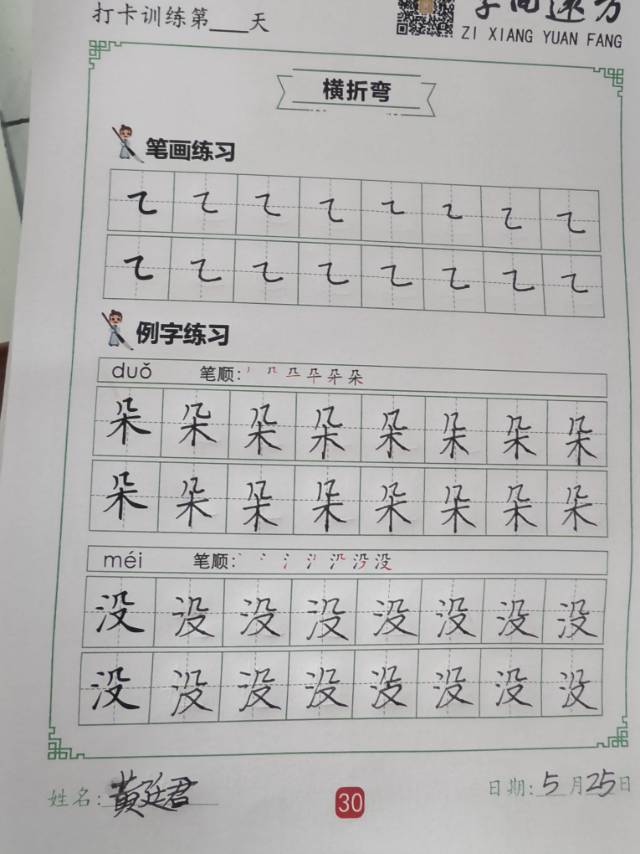 打卡训练第___天
字间远方
ZI XIANG YUAN FANG
横折弯
笔画练习
㇍ ㇍ ㇍ ㇍ ㇍ ㇍ ㇍ ㇍
㇍ ㇍ ㇍ ㇍ ㇍ ㇍ ㇍ ㇍
例字练习
duǒ 笔顺:
朵 朵 朵 朵 朵 朵 朵 朵
朵 朵 朵 朵 朵 朵 朵 朵
méi 笔顺:
没 没 没 没 没 没 没 没
没 没 没 没 没 没 没 没
姓名:黄廷君 30 日期:5月25日